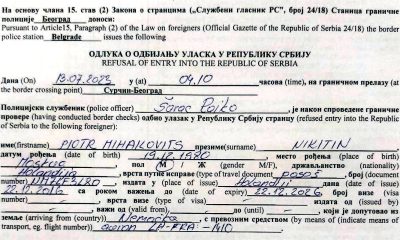 На основу члана 15. став (2) Закона о странцима („Службени гласник РС", број 24/18) Станица граничне
полиције Београд доноси:
Pursuant to Article15, Paragraph (2) of the Law on foreigners (Official Gazette of the Republic of Serbia 24/18) the border
police station Belgrade issues the following
ОДЛУКА О ОДБИЈАЊУ УЛАСКА У РЕПУБЛИКУ СРБИЈУ
REFUSAL OF ENTRY INTO THE REPUBLIC OF SERBIA
Дана (On) 13.07.2023 у (at) 04.10 (hrs) на граничном прелазу (at
the border crossing point) Сурчин-Београд
Полицијски службеник (police officer) Šarac Rajko, је након спроведене граничне
провере (having conducted border checks) одбио улазак у Републику Србију странцу (refused entry into the Republic
of Serbia to the following foreigner):
име(firstname) PIOTR MIHAKOVITS презиме(surname) NIKITIN
датум рођења (date of birth) 19.12.1980, место рођења (place of birth)
Moskva пол М / Ж (gender M/F), држављанство (nationality)
Holandija, врста путне исправе (type of travel document) pasoš, број (document
number) издата у (place of issue) Holandiji дана (date of issue)
22.12.2016 роком важења до (date of expiry) 22.12.2026 број визе (visa
number) - врста визе (type of visa) - издата од (issued by)
- важи од (valid from) - до (until) - који је допутовао из
земље (arriving from (country)) Nemačka с превозним средством (by means of (indicate means
of transport, eg. flight number) avion -FRA-1410